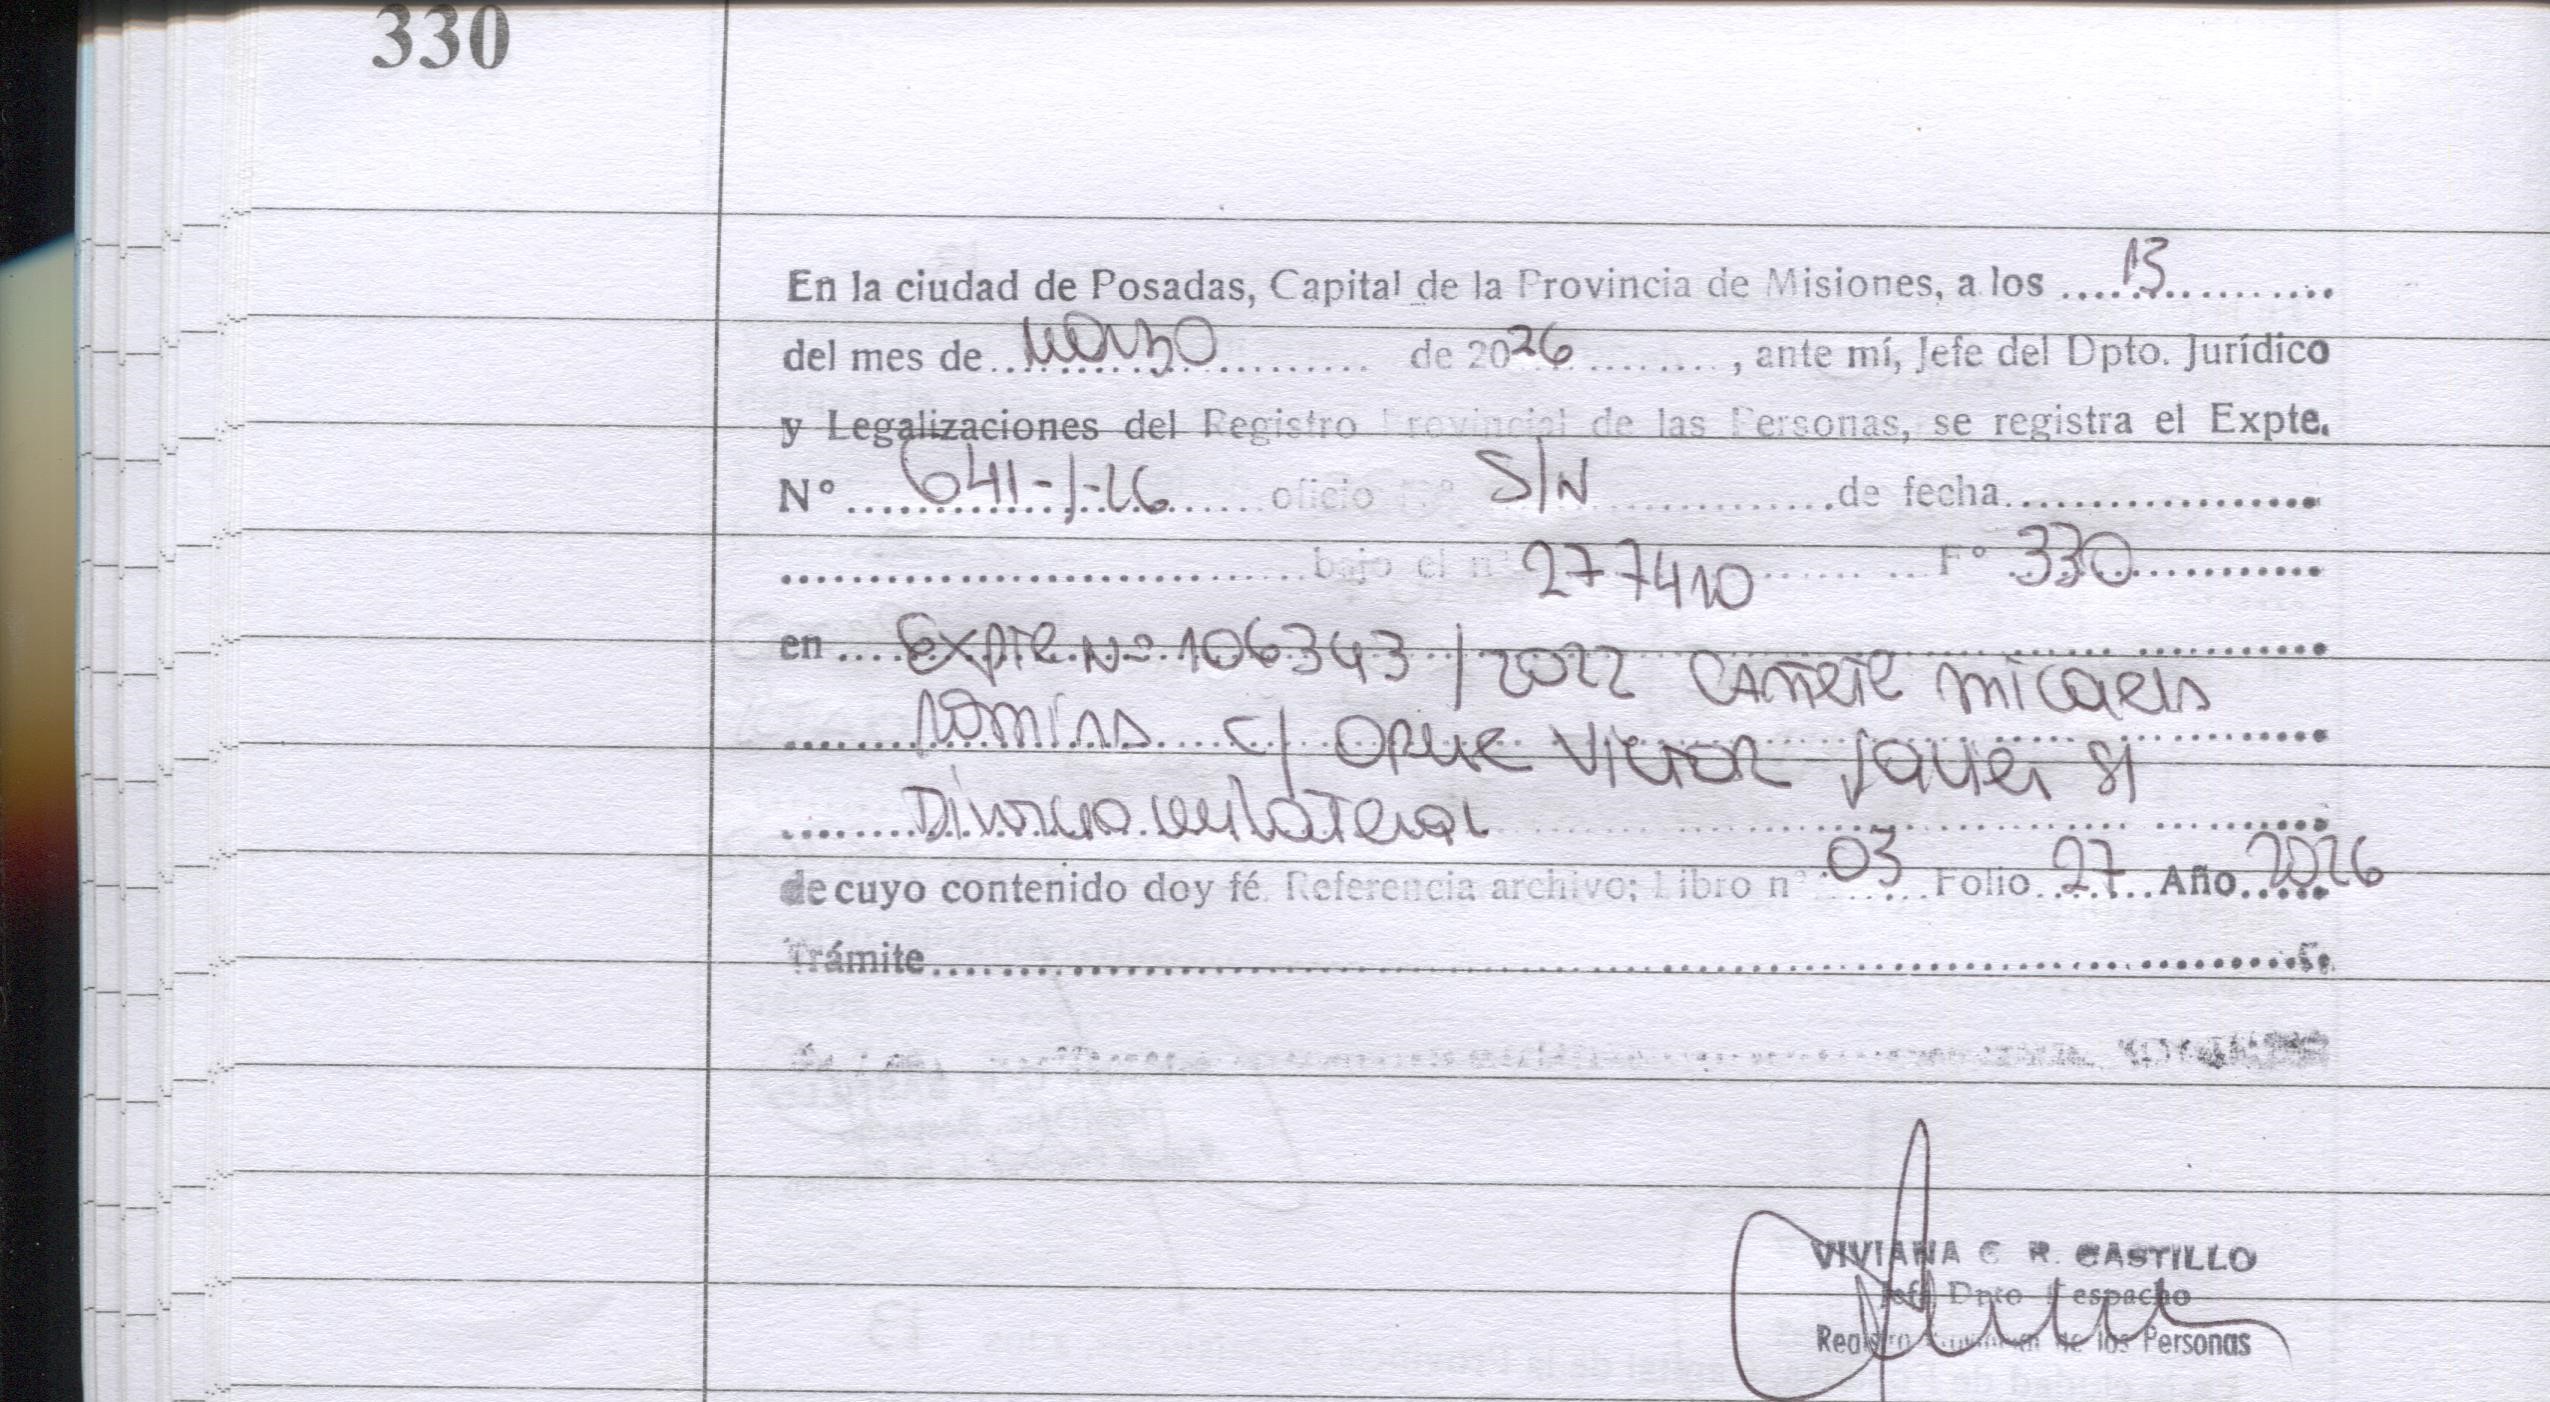 330
En la ciudad de Posadas, Capital de la Provincia de Misiones, a los 13
del mes de Marzo de 2026, ante mí, Jefe del Dpto. Jurídico
y Legalizaciones del Registro Provincial de las Personas, se registra el Expte.
Nº 641-J-26 oficio Nº S/N de fecha
bajo el nº 277410 Fº 330
en Expte Nº 106343/2022 CAÑETE Micaela
Romina c/ ORUE VICTOR Javier s/
Divorcio unilateral
de cuyo contenido doy fé. Referencia archivo; Libro nº 03 Folio 27 Año 2026
Trámite
VIVIANA C R. CASTILLO
Jefe Dpto Despacho
Registro Provincial de las Personas